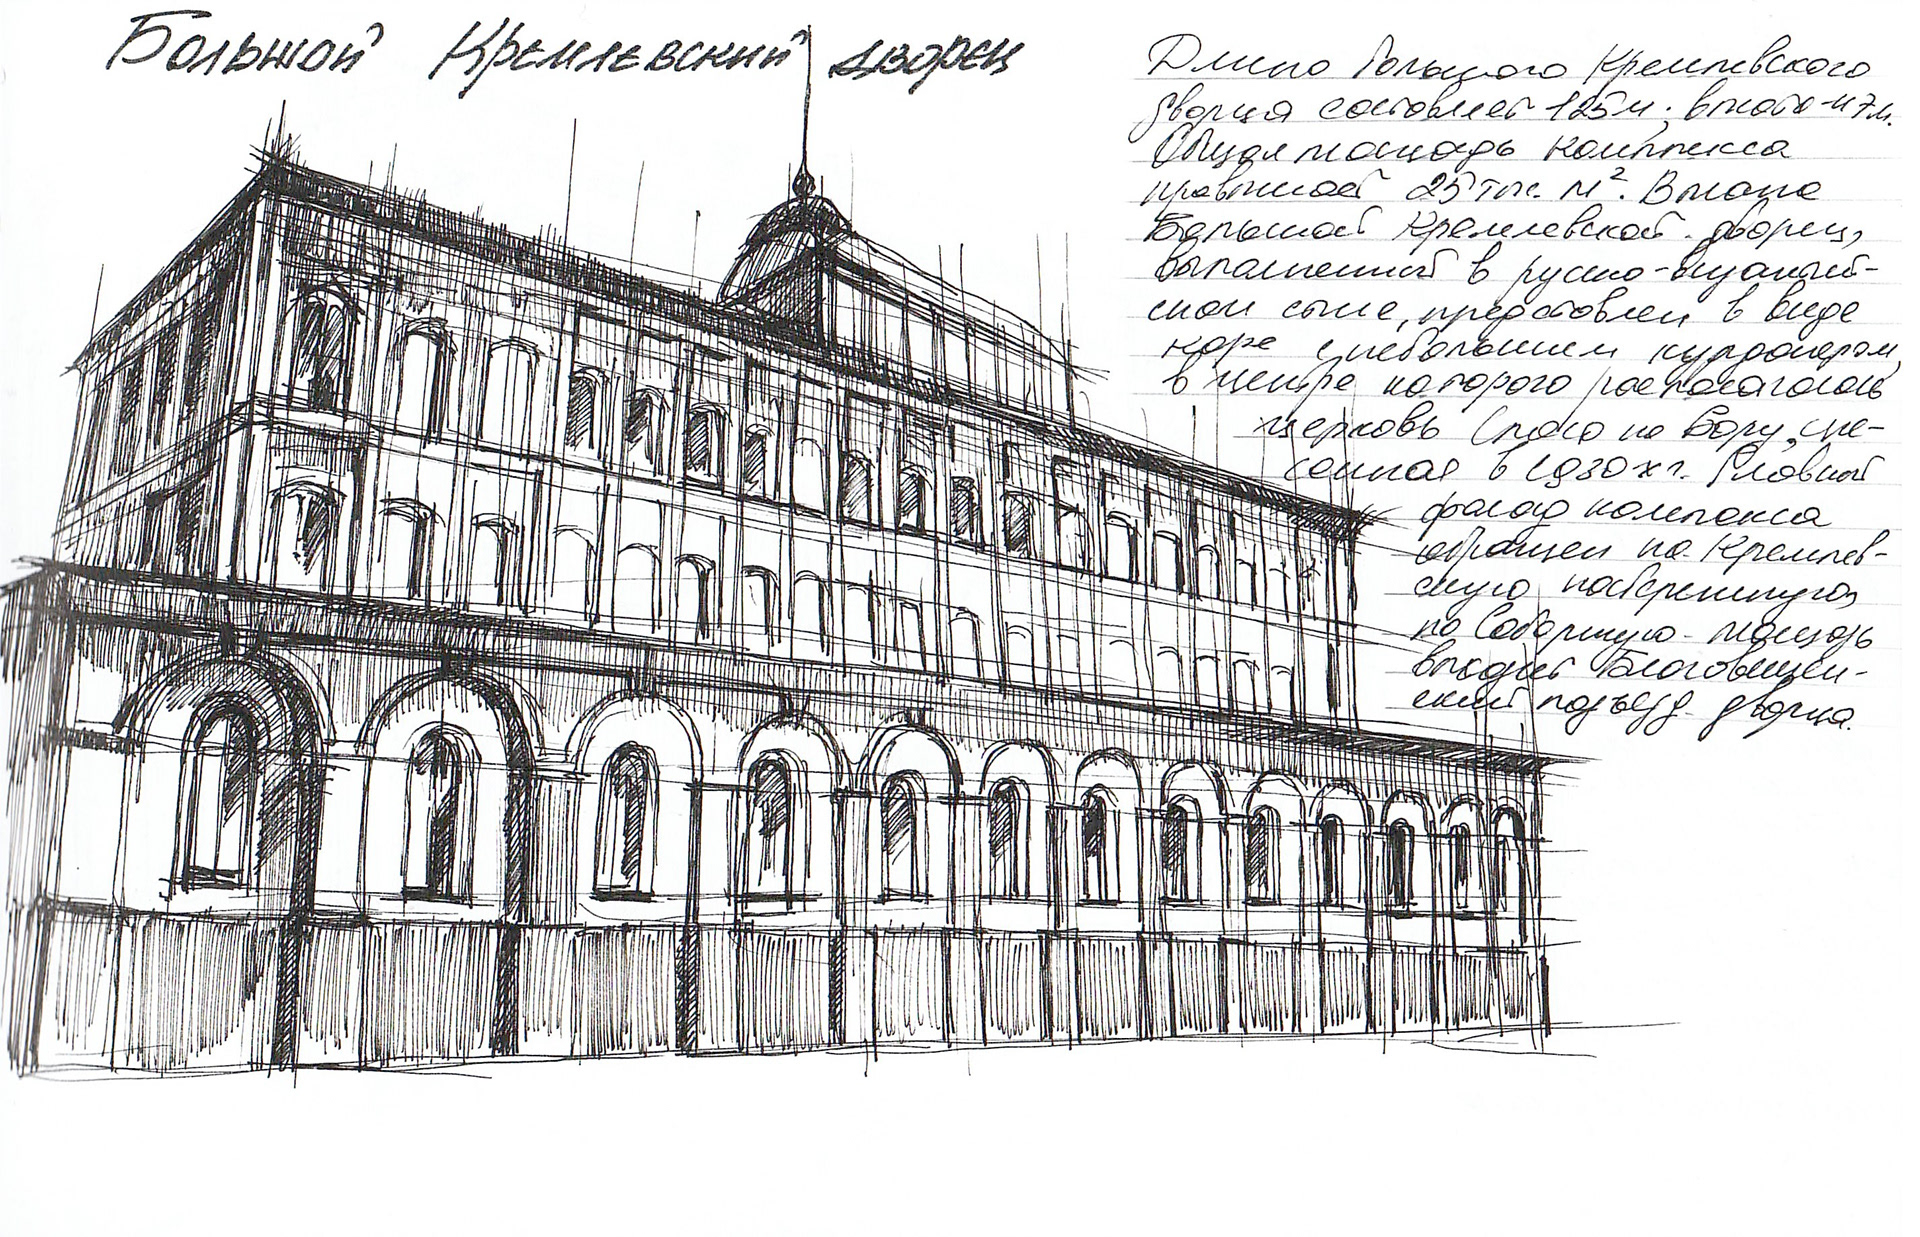 Большой Кремлевский дворец
Длина Большого Кремлевского
дворца составляет 125 м, высота - 47 м.
Общая площадь комплекса
превышает 25 тыс. м². В плане
Большой Кремлевской дворец,
выполненный в русско-византий-
ском стиле, представлен в виде
каре с небольшим курдонером,
в центре которого располагалась
церковь Спаса на Бору, сне-
сенная в 1930х г. Главный
фасад комплекса
обращен на Кремлев-
скую набережную,
на Соборную площадь
выходит Благовещен-
ский подъезд дворца.